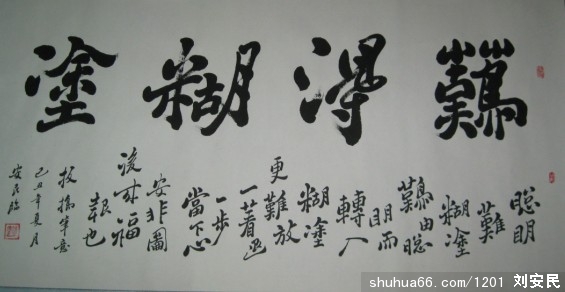 難淂糊塗
聰明
難
糊塗
難由聰
明而
轉入
糊塗
更難放
一著退
一步
當下心
安非圖
後來福
報也
板橋筆意
己丑年夏月
安民臨
shuhua66.com/1201 刘安民